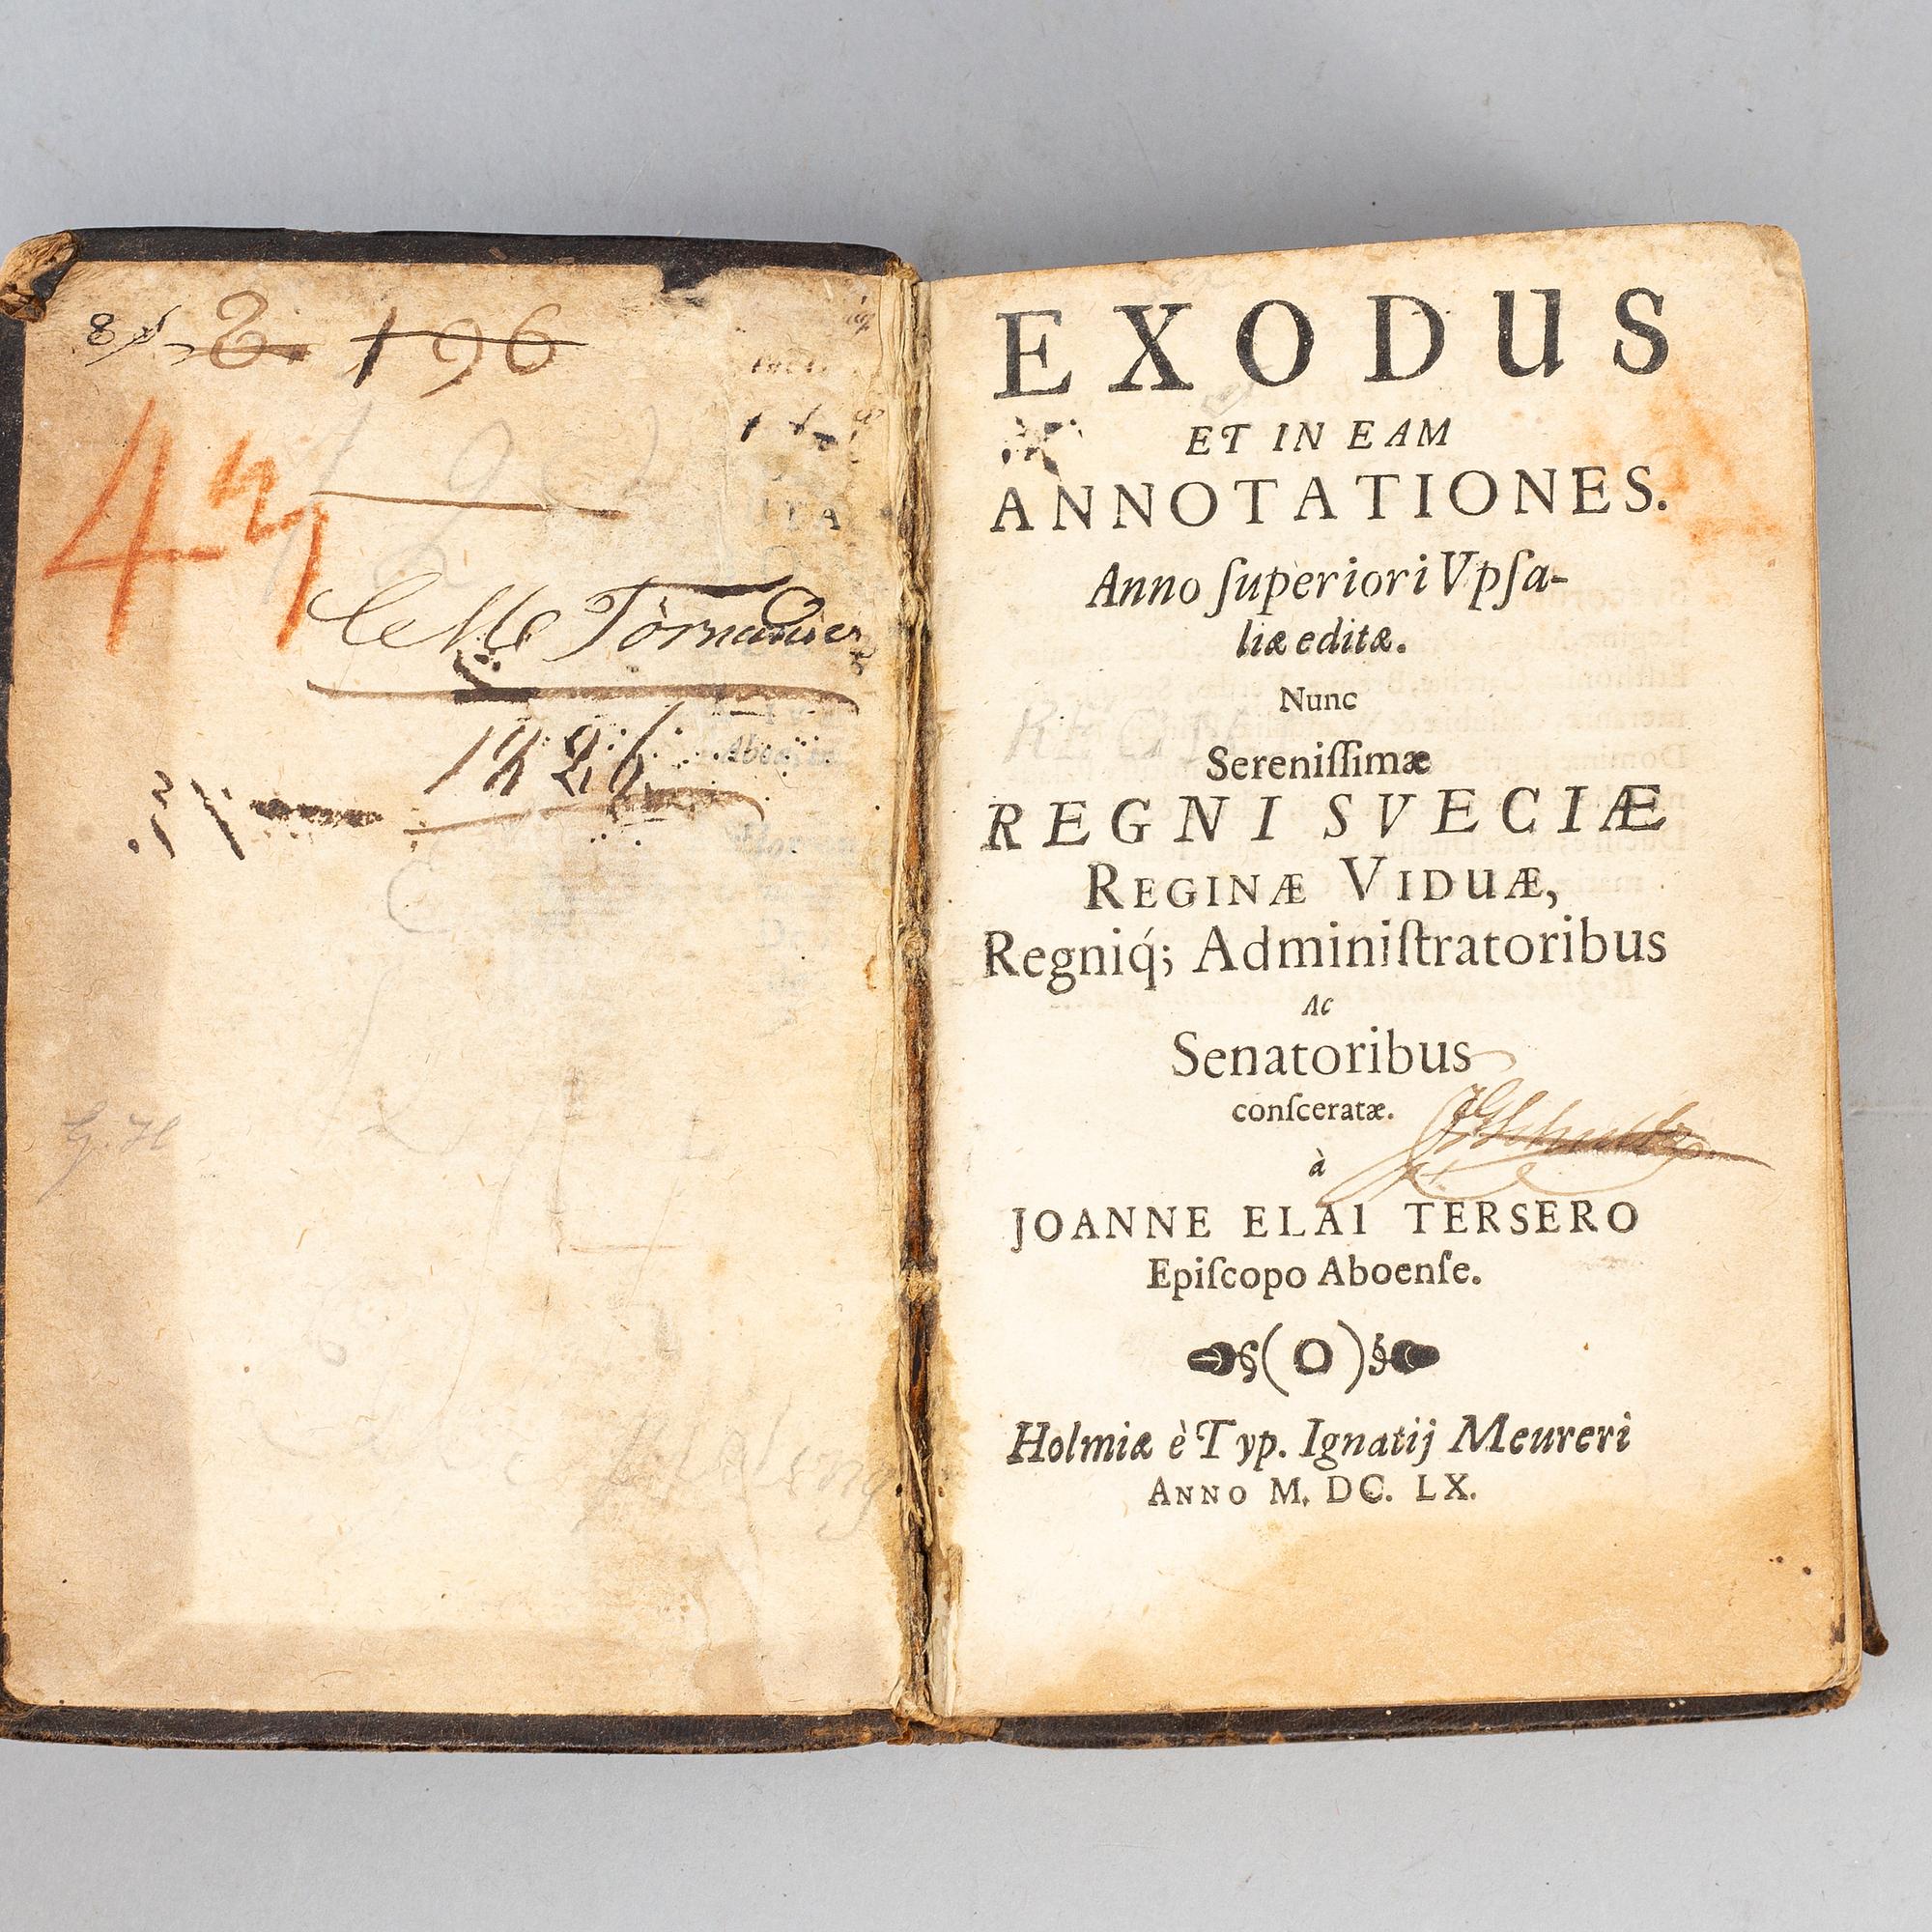 8
8. 196
47
Törnudder
1826
G. H
EXODUS
ET IN EAM
ANNOTATIONES.
Anno ſuperiori Vpſa-
liæ editæ.
Nunc
Sereniſſimæ
REGNI SVECIÆ
REGINÆ VIDUÆ,
Regniq́; Adminiſtratoribus
AC
Senatoribus
conſceratæ.
à
JOANNE ELAI TERSERO
Epiſcopo Aboenſe.
§( O )§
Holmiæ è Typ. Ignatij Meureri
ANNO M. DC. LX.